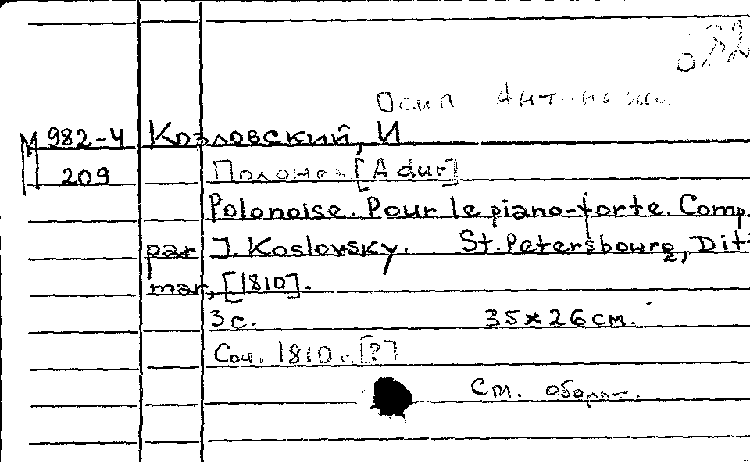 Осип Антонович
М 982-4 Козловский, И
209 Полонез [A dur]
Polonoise. Pour le piano-forte. Comp.
par J. Koslovsky. St. Petersbourg, Dit
mar, [1810].
3 с. 35×26 см.
Соч. 1810 г. [?]
См. оборот.